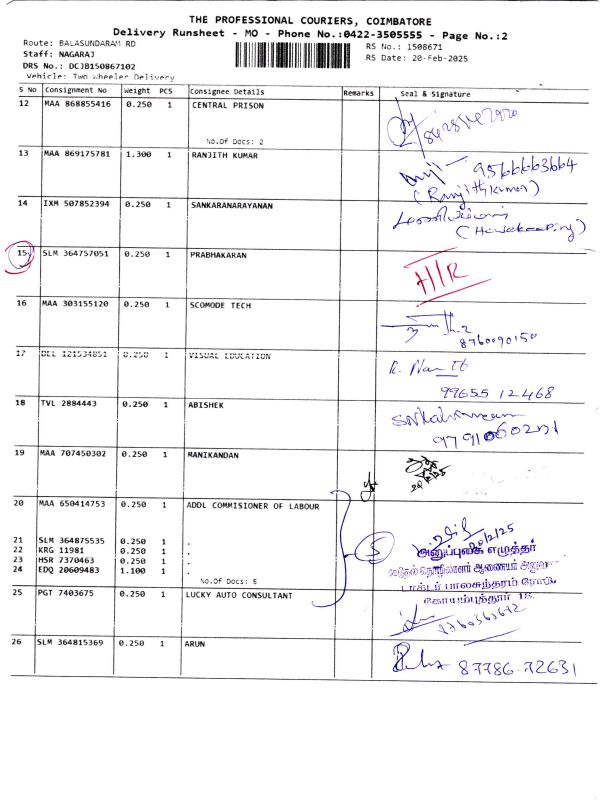 THE PROFESSIONAL COURIERS, COIMBATORE
Delivery Runsheet - MO - Phone No.:0422-3505555 - Page No.:2
Route: BALASUNDARAM RD
RS No.: 1508671
Staff: NAGARAJ
RS Date: 20-Feb-2025
DRS No.: DCJB150867102
Vehicle: Two Wheeler Delivery
S No Consignment No Weight PCS Consignee Details Remarks Seal & Signature
12 MAA 868855416 0.250 1 CENTRAL PRISON
No.Of Docs: 2
13 MAA 869175781 1.300 1 RANJITH KUMAR 9566663664
(Ranjithkumar)
14 IXM 507852394 0.250 1 SANKARANARAYANAN
(Housekeeping)
15 SLM 364757051 0.250 1 PRABHAKARAN H/R
16 MAA 303155120 0.250 1 SCOMODE TECH
8760090150
17 DEL 121534851 0.250 1 VISUAL EDUCATION
99655 12468
18 TVL 2884443 0.250 1 ABISHEK
19 MAA 707450302 0.250 1 MANIKANDAN
20 MAA 650414753 0.250 1 ADDL COMMISIONER OF LABOUR
20/2/25
21 SLM 364875535 0.250 1 .
5
22 KRG 11981 0.250 1 .
அனுப்புகை எழுத்தர்
23 HSR 7370463 0.250 1 .
24 EDQ 20609483 1.100 1 .
கூடுதல் தொழிலாளர் ஆணையர்
No.Of Docs: 5
டாக்டர் பாலசுந்தரம் ரோடு
25 PGT 7403675 0.250 1 LUCKY AUTO CONSULTANT
கோயம்புத்தூர் 18.
26 SLM 364815369 0.250 1 ARUN
87786-72631